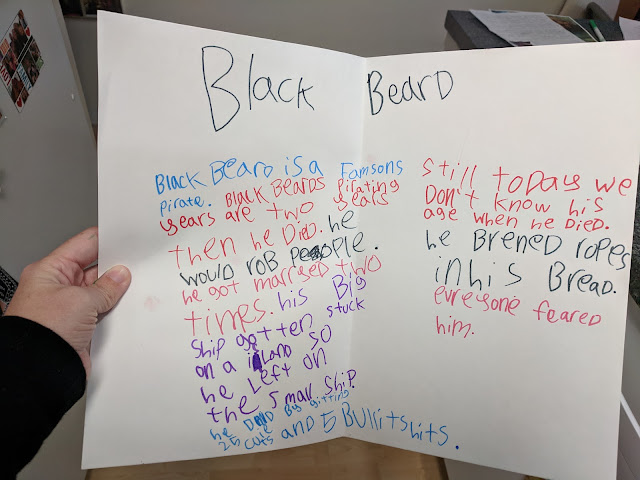 Black Beard
Black Beard is a Famsons
pirate. Black Beards pirating
years are two years
then he Died. he
would rob people.
he got marrsed two
times. his Big
ship gotten stuck
on a island so
he left on
the small ship.
he Died By gitting
25 cuts and 5 Bullitshits.
still todays we
Don't know his
age when he Died.
he Brened ropes
in his Bread.
evreyone feared
him.